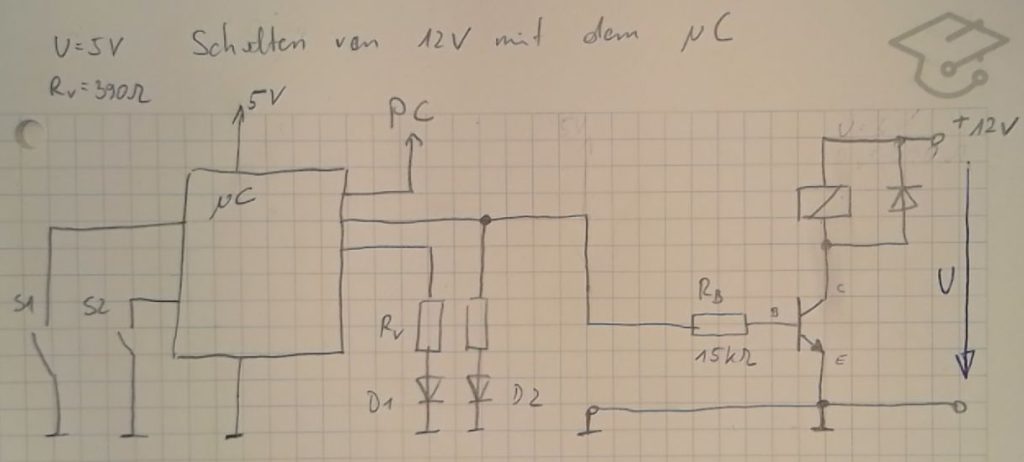 U=5V Schalten von 12V mit dem µC
Rv=390Ω
5V
PC
+12V
µC
S1
S2
Rv
D1
D2
RB
15kΩ
B
C
E
U